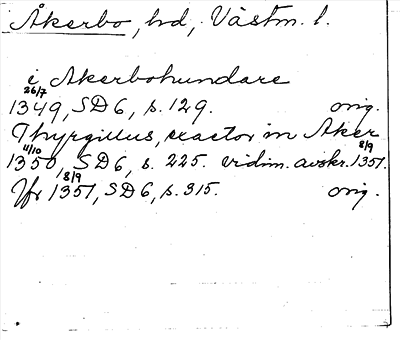 Åkerbo, hd, Västm. l.
i Akerbohundare
26/7
1349, SD 6, s. 129. orig.
Thyrgillus, exactor in Aker
4/10 8/9
1350, SD 6, s. 225. vidim. avskr. 1351.
8/9
Jfr 1351, SD 6, s. 315. orig.